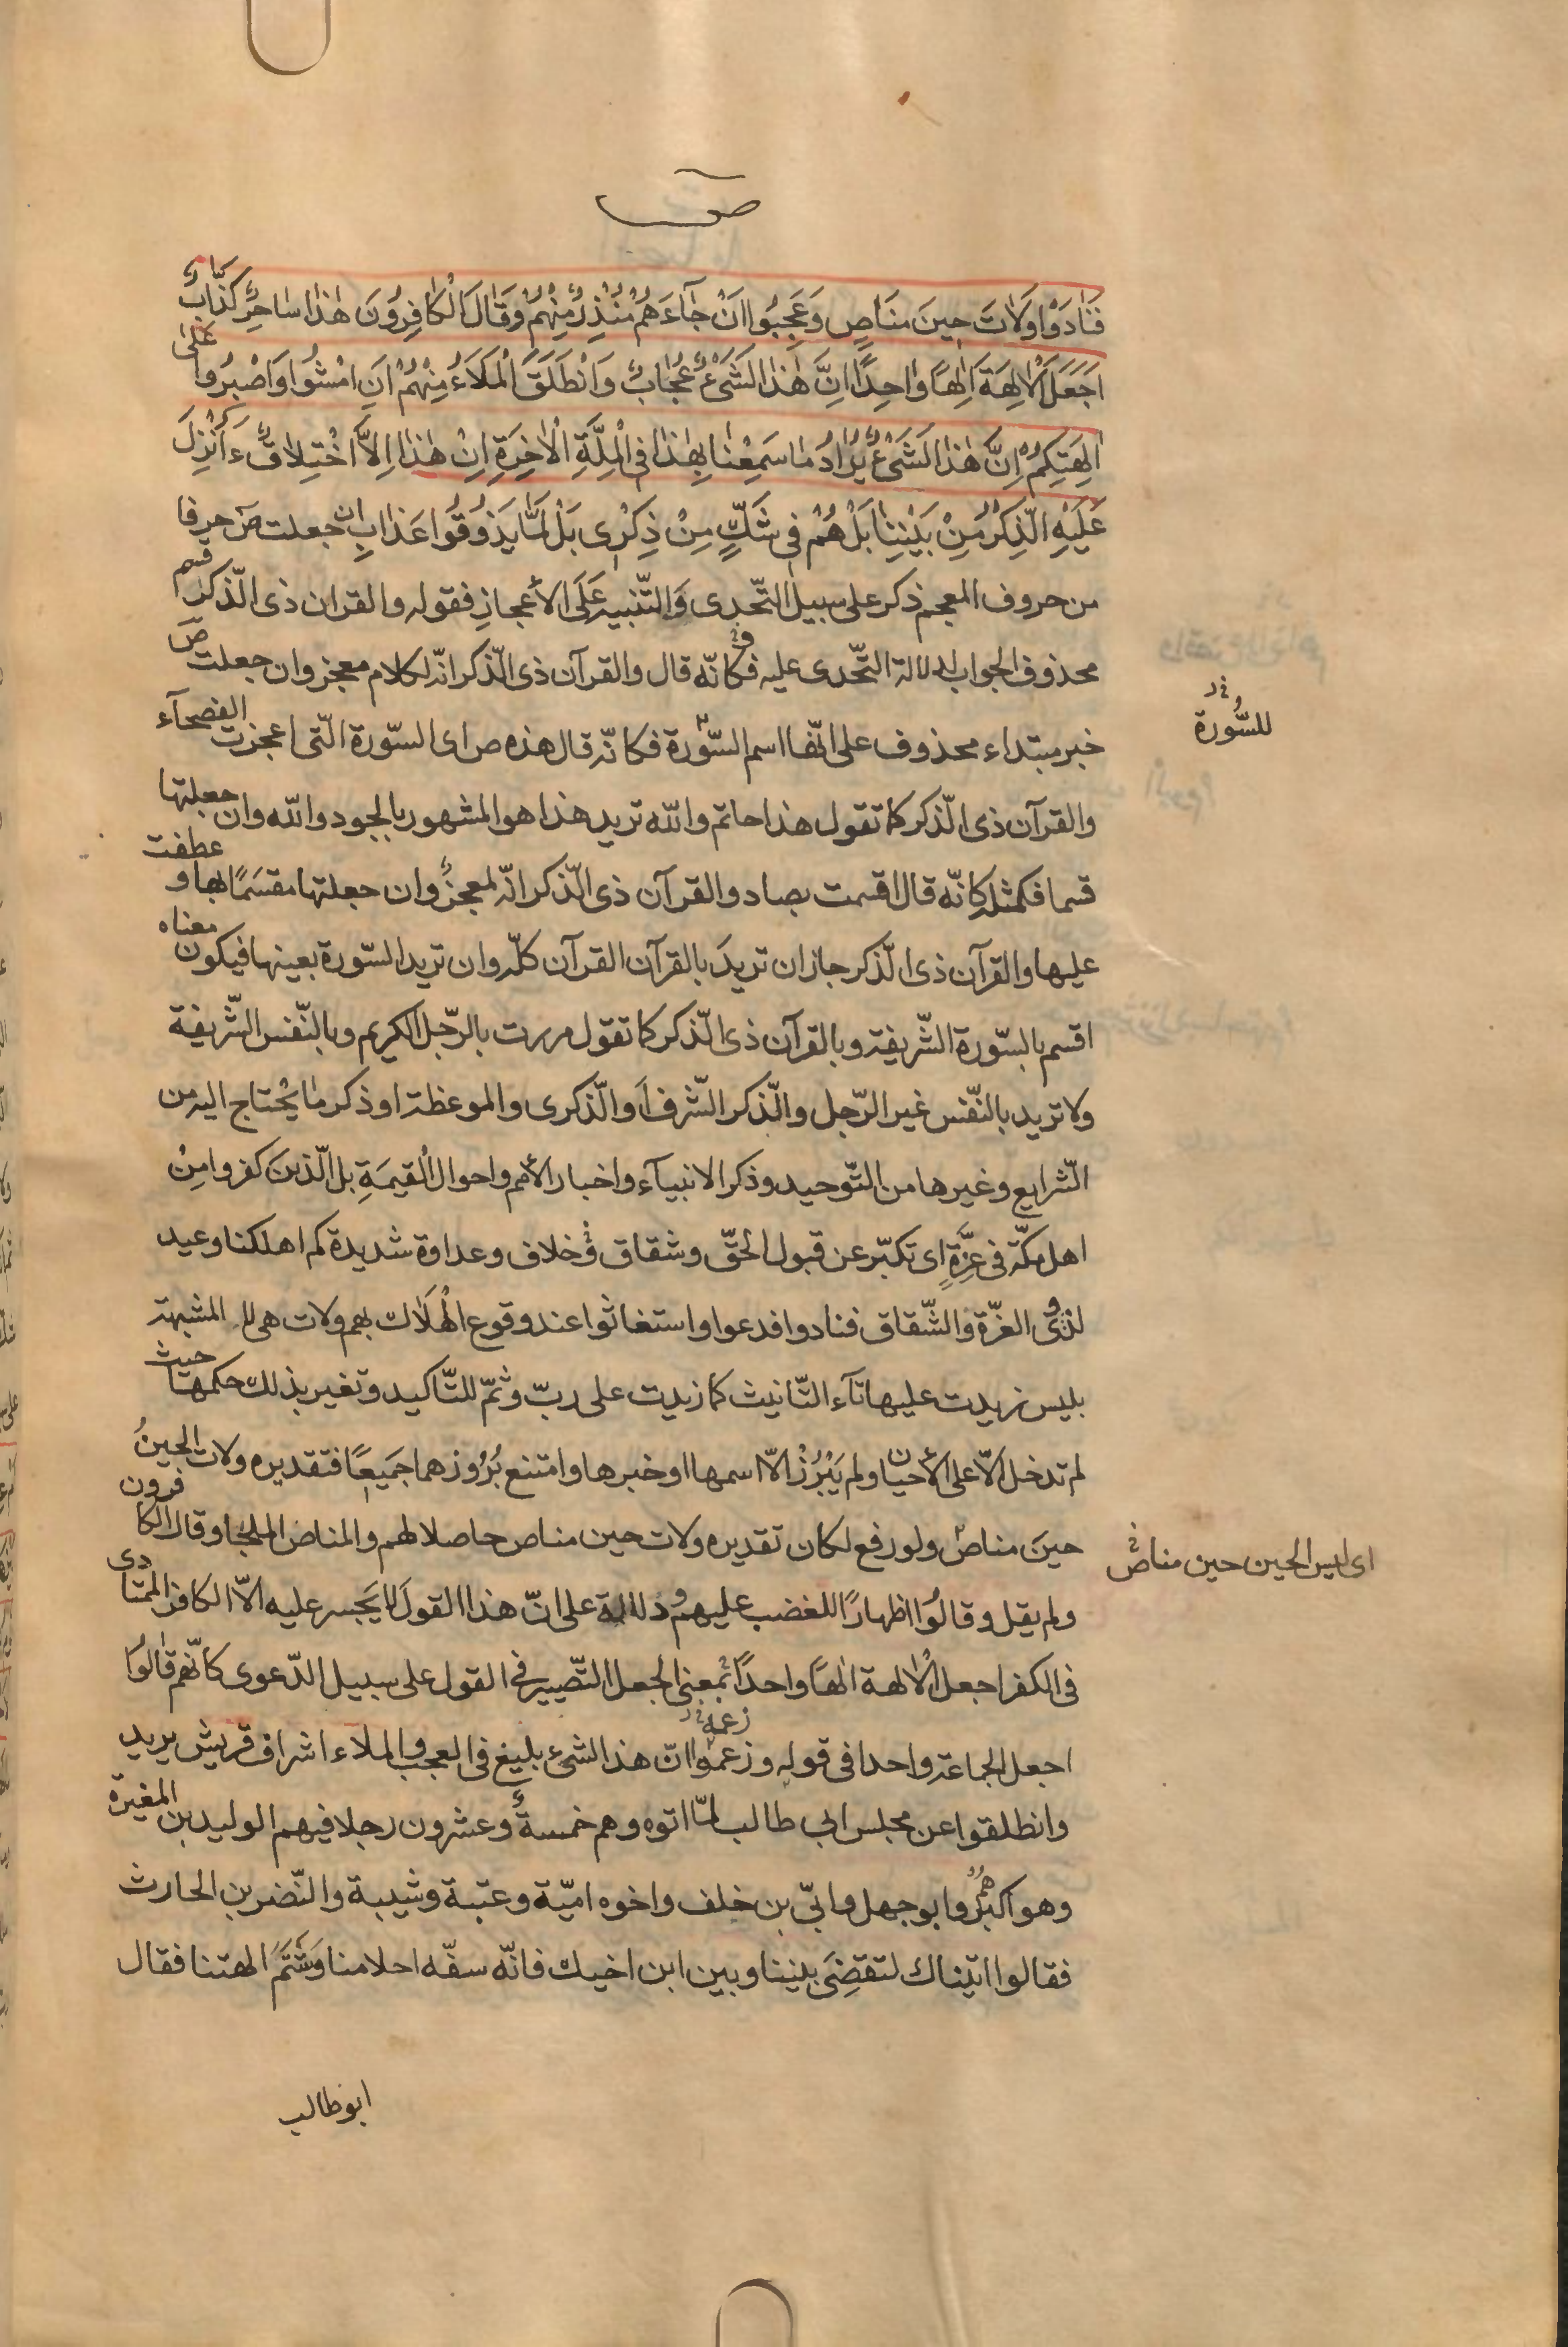 ص
فَنٰادَوْا وَلٰاتَ حِينَ مَنٰاصٍ وَعَجِبُوا اَنْ جٰآءَهُمْ مُنْذِرٌ مِنْهُمْ وَقٰالَ الْكٰافِرُونَ هٰذٰا سٰاحِرٌ كَذّٰابٌ
اَجَعَلَ الْاٰلِهَةَ اِلٰهًا وٰاحِدًا اِنَّ هٰذٰا لَشَىْءٌ عُجٰابٌ وَانْطَلَقَ الْمَلَاءُ مِنْهُمْ اَنِ امْشُوا وَاصْبِرُوا عَلٰى
اٰلِهَتِكُمْ اِنَّ هٰذٰا لَشَىْءٌ يُرٰادُ مٰا سَمِعْنٰا بِهٰذٰا فِى الْمِلَّةِ الْاٰخِرَةِ اِنْ هٰذٰا اِلَّا اخْتِلٰاقٌ ءَاُنْزِلَ
عَلَيْهِ الذِّكْرُ مِنْ بَيْنِنٰا بَلْ هُمْ فِى شَكٍّ مِنْ ذِكْرِى بَلْ لَمّٰا يَذُوقُوا عَذٰابِ ان جعلت صٓ حرفا
من حروف المعجم ذكر على سبيل التّحدى وَالتّنبيه عَلَى الأعجازِ فقوله والقران ذى الذّكر قسم
محذوف الجواب لدلالة التّحدى عليه فكانّه قال والقرآن ذى الذّكر انّه لكلام معجز وان جعلت صٓ
خبر مبتداء محذوف على انّها اسم السّورة فكانّه قال هذه ص اى السّورة الّتى اعجزت الفصحآء
للسُّورة
والقرآن ذى الذّكر كما تقول هذا حاتم والله تريد هذا هو المشهور بالجود والله وان جعلتها
قسما فكمثله كانّه قال اقسمت بصاد والقرآن ذى الذّكر انّه لمعجزٌ وان جعلتها مقسَمًا بها و عطفت
عليها والقرآن ذى الذّكر جاز ان تريدَ بالقرآن القرآن كلّه وان تريد السّورة بعينها فيكون معناه
اقسم بالسّورة الشّريفة وبالقرآن ذى الذّكر كما تقول مررت بالرّجل الكريم وبالنّفس الشّريفة
ولا تريد بالنّفس غير الرّجل والذّكر الشّرف اَو الذّكرى والموعظة او ذكر مٰا يُحْتاج اليه من
الشّرايع وغيرها من التّوحيد وذكر الانبيآء واخبار الأمم واحوال القيمَةِ بل الّذينَ كفروا مِنْ
اهل مكّة فى عِزَّةٍ اى تكبّر عن قبول الحقّ وشقاق وخلاف وعداوة شديدة كم اهلكنا وعيد
لذوى العزّة والشّقاق فنادوا فدعوا واستغاثوا عند وقوع الْهَلاك بهم ولات هى لا المشبهة
بليس زيدت عليها تآء التّانيث كما زيدت على ربّ وثمّ للتّاكيد وتغير بذلك حكمها حيث
لم تدخل الّا على الأحيان ولم يَبْرُزْ الّا اسمها او خبرها وامتنع بُرُوزهما جَمِيعًا فتقديره ولات الحينُ
حينَ مناص ولو رفع لكان تقديره ولات حين مناص حاصلا لهم والمناص الملجا وقال الكافرون
اى ليس الحين حين مناص
ولم يقل وقالُوا اظهارًا للغضب عليهم ودلالة على انّ هذا القولَ لا يَجسر عليه الّا الكافر المتمادى
فى الكفر اجعل الْاٰلهة الٰهًا واحدًا بمعنى الجعل التّصيير فى القول على سبيل الدّعوى كانّهم قالُوا
اجعل الجماعة واحدا فى قوله وزعموا انّ هذا الشىء بليغ فى العجب والملاء اشراف قريش يريد
زعمه
وانطلقوا عن مجلس ابى طالب لمّا اتوه وهم خمسةٌ وعشرون رجلا فيهم الوليد بن المغيرة
وهو اكبرُهُمْ وابو جهل وابىّ بن خلف واخوه اميّة وعتبة وشيبة والنّضر بن الحارث
فقالوا اتيناك لتقضِىَ بيننا وبين ابن اخيك فانّه سفّه احلامنا وَشَتَمَ الهتنا فقال
ابوطالب